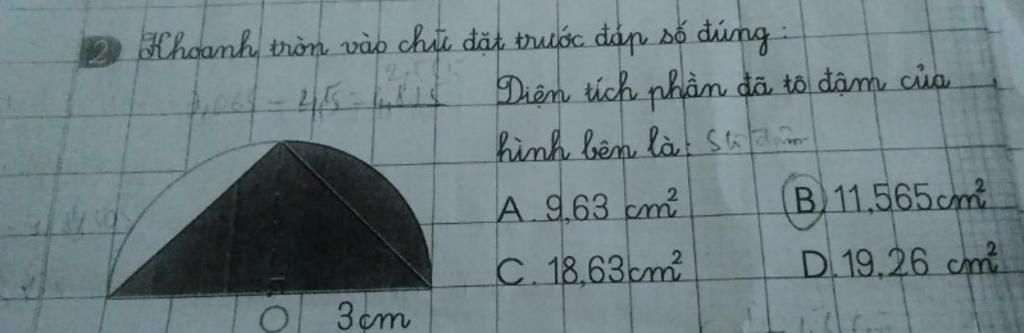 2 Khoanh tròn vào chữ đặt trước đáp số đúng:
Diện tích phần đã tô đậm của
hình bên là:
A. 9,63 cm²
B 11,565 cm²
C. 18,63 cm²
D. 19,26 cm²
O 3cm